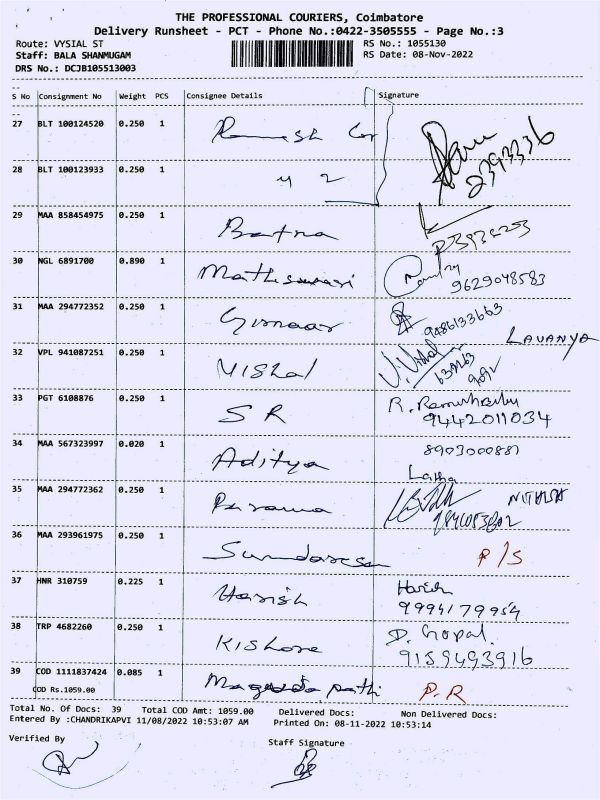 THE PROFESSIONAL COURIERS, Coimbatore
Delivery Runsheet - PCT - Phone No.:0422-3505555 - Page No.:3
Route: VYSIAL ST RS No.: 1055130
Staff: BALA SHANMUGAM RS Date: 08-Nov-2022
DRS No.: DCJB105513003
S No Consignment No Weight PCS Consignee Details Signature
27 BLT 100124520 0.250 1 Ramesh
28 BLT 100123933 0.250 1
2393336
29 MAA 858454975 0.250 1 Batna
30 NGL 6891700 0.890 1 9629048583
31 MAA 294772352 0.250 1 9486133663
LAVANYA
32 VPL 941087251 0.250 1 Vishal V.Vishal
33 PGT 6108876 0.250 1 SR R.
9442011034
34 MAA 567323997 0.020 1 Aditya 8903000881
Latha
35 MAA 294772362 0.250 1
36 MAA 293961975 0.250 1 Sundaresan P/S
37 HNR 310759 0.225 1 Harish Harish
9994179954
38 TRP 4682260 0.250 1 Kishore D. Gopal.
9159493916
39 COD 1111837424 0.085 1 P.R
COD Rs.1059.00
Total No. Of Docs: 39 Total COD Amt: 1059.00 Delivered Docs: Non Delivered Docs:
Entered By :CHANDRIKAPVI 11/08/2022 10:53:07 AM Printed On: 08-11-2022 10:53:14
Verified By Staff Signature